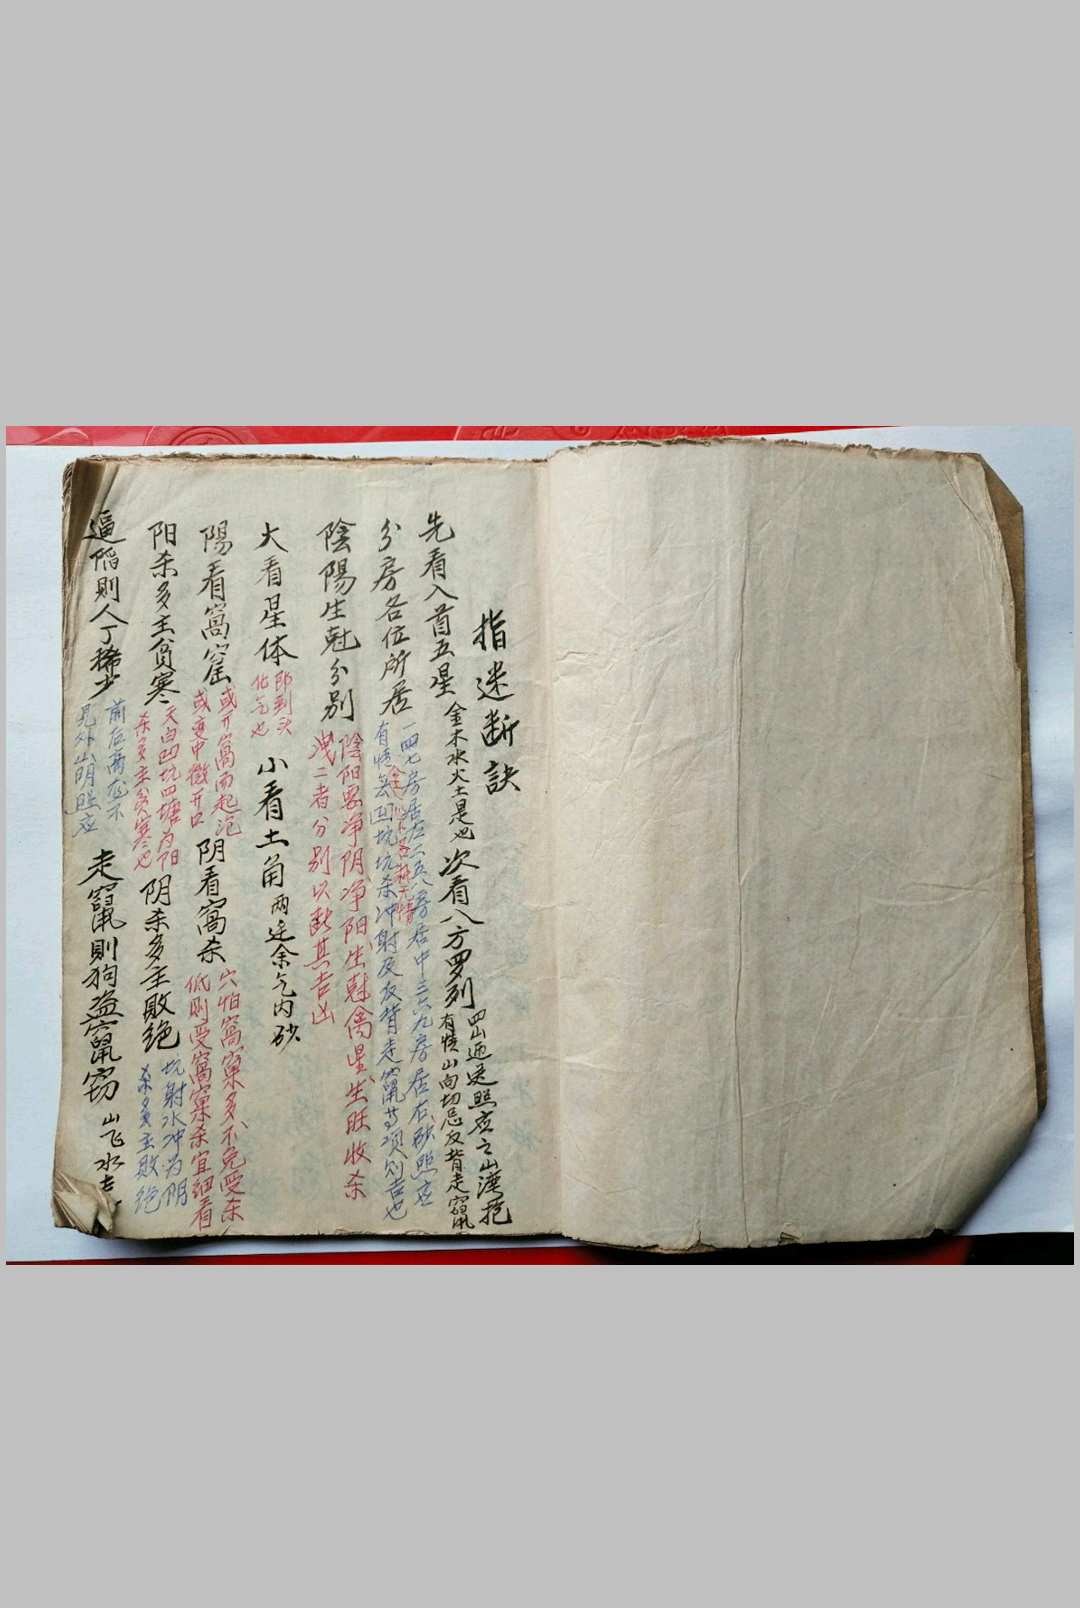 指迷断訣
先看入首五星 金木水火土是也 次看八方罗列 四山迎送照应之山湾抱
有情山向切忌反背走窜
分房各位所居 一四七房居左二五八房居中三六九房居右砂照应
有情无凹坑坑杀冲射及反背走窜等项则吉也
陰陽生尅分别 陰阳要净阴净阳生尅禽星生旺收杀
洩二者分别以断其吉凶
大看星体 即到头
化气也 小看土角 两边余气内砂
陽看窩窟 或开窩而起泡
或变中微开口 阴看窩杀 穴怕窩窠多不免受杀
低则受窩窠杀宜细看
阳杀多主貧寒 天白凹坑四塘为阳
杀多主貧寒也 阴杀多主敗绝 坑射水冲为阴
杀多主敗绝
逼陷則人丁稀少 前后两龙不
見外明照应 走竄則狗盗竄窃 山飞水走